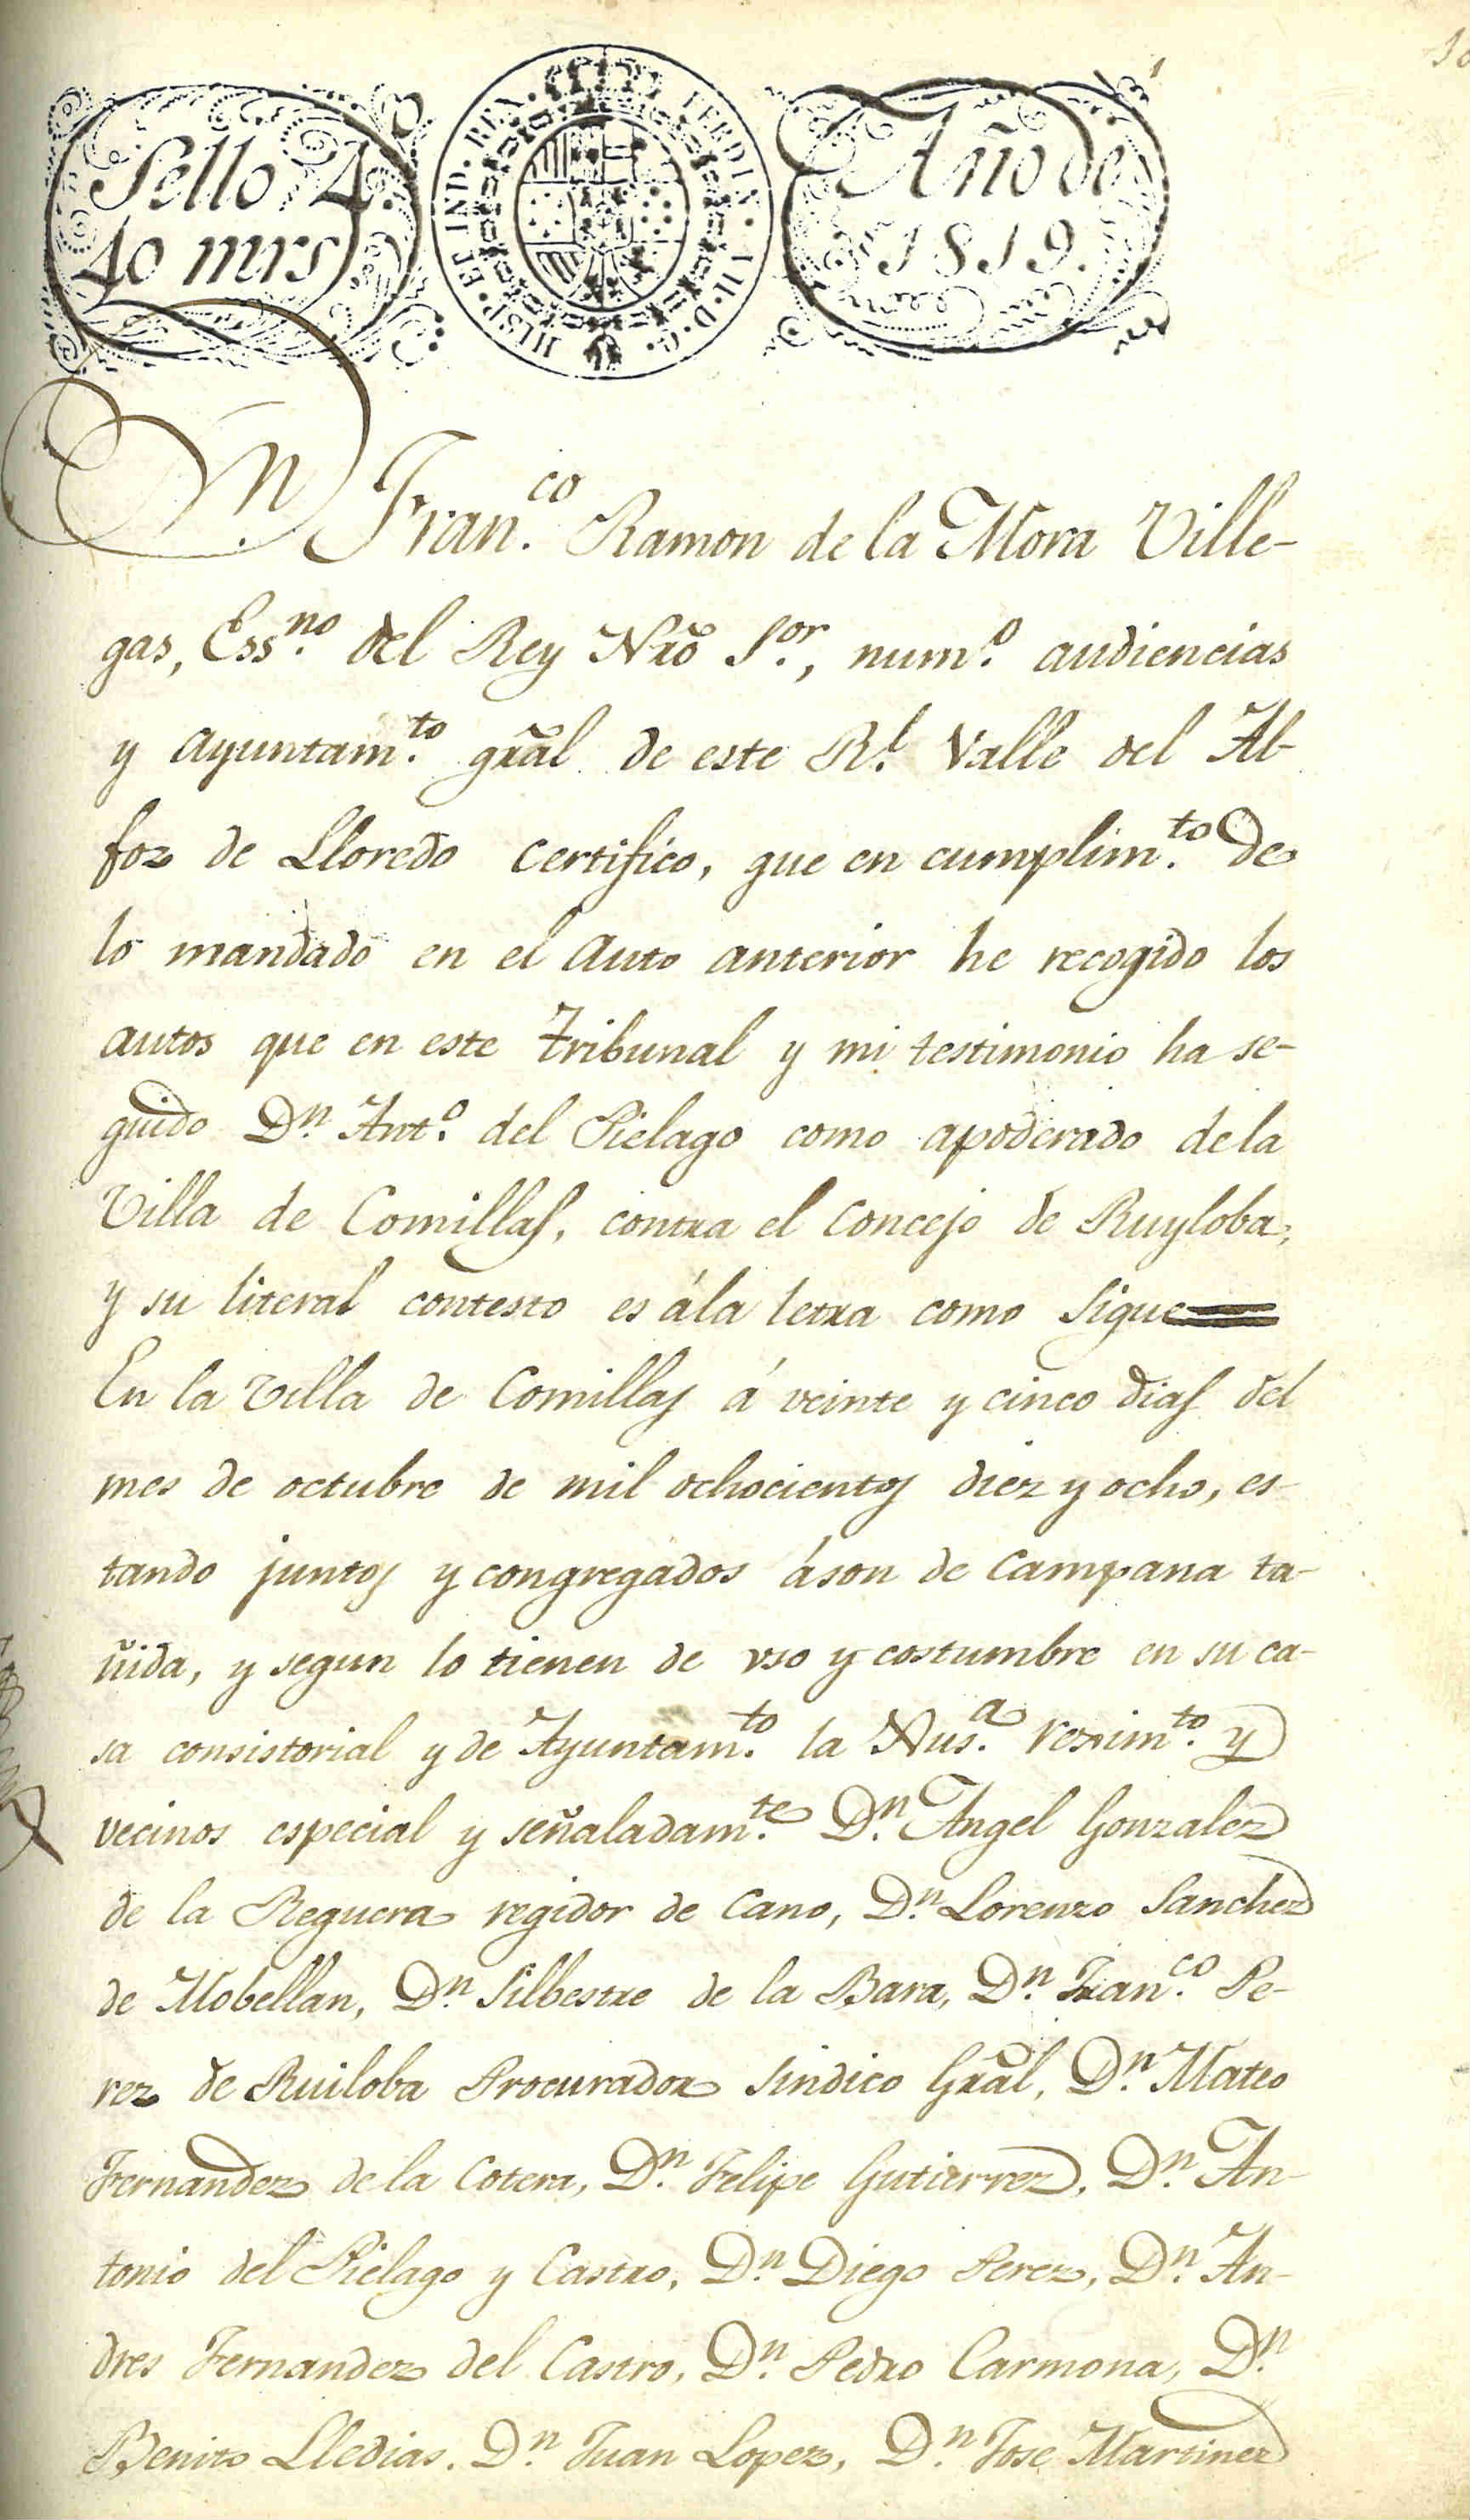 Sello 4.
40 mrs
HISP. ET IND. REX. FERDIN. VII. D. G.
Año de
1819.
Dn Fran.co Ramon de la Mora Ville-
gas, Ess.no del Rey Nro S.or, num.o audiencias
y ayuntam.to gral de este R.l Valle del Al-
foz de Lloredo certifico, que en cumplim.to de
lo mandado en el Auto anterior he recogido los
autos que en este tribunal y mi testimonio ha se-
guido D.n Ant.o del Pielago como apoderado de la
Villa de Comillas, contra el Concejo de Ruyloba,
y su literal contesto es á la letra como sigue
En la Villa de Comillas á veinte y cinco dias del
mes de octubre de mil ochocientos diez y ocho, es-
tando juntos y congregados á son de campana ta-
ñida, y segun lo tienen de vso y costumbre en su ca-
sa consistorial y de Ayuntam.to la Nus.a reximto. y
vecinos especial y señaladam.te D.n Angel Gonzalez
de la Reguera regidor de Cano, D.n Lorenzo Sanchez
de Mobellan, D.n Silbestre de la Bara, D.n Fran.co Pe-
rez de Ruiloba Procurador Sindico Gral, D.n Mateo
Fernandez de la Cotera, D.n Felipe Gutierrez, D.n An-
tonio del Pielago y Castro, D.n Diego Perez, D.n An-
dres Fernandez del Castro, D.n Pedro Carmona, D.n
Benito Lledias, D.n Juan Lopez, D.n Jose Martinez